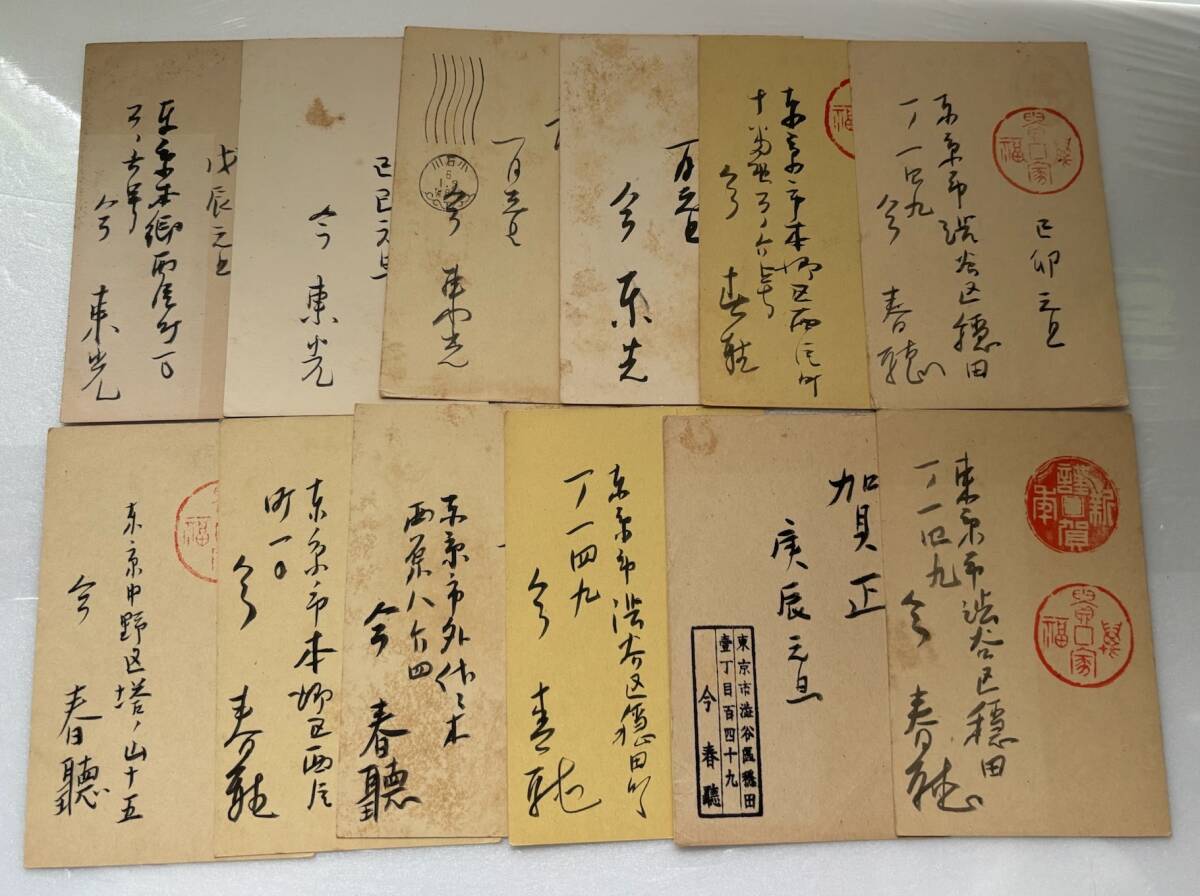 己卯元旦
東京市渋谷区穏田
丁一四九
今 春聴
福
東京市本郷区西片町
今 春聴
一月元旦
今 東光
一月元旦
今 東光
己巳元旦
今 東光
戊辰元旦
東京本郷西片町一〇
今 東光
新年
謹賀
福
東京市渋谷区穏田
丁一四九
今 春聴
加貝正
庚辰元旦
東京市澁谷區穏田
壹丁目百四十九
今春聽
東京市渋谷区穏田町
丁一四九
今 春聴
東京市外代々木
西原八六四
今 春聽
東京市本郷区西片
町一〇
今 春聴
福
東京中野区塔ノ山十五
今 春聽